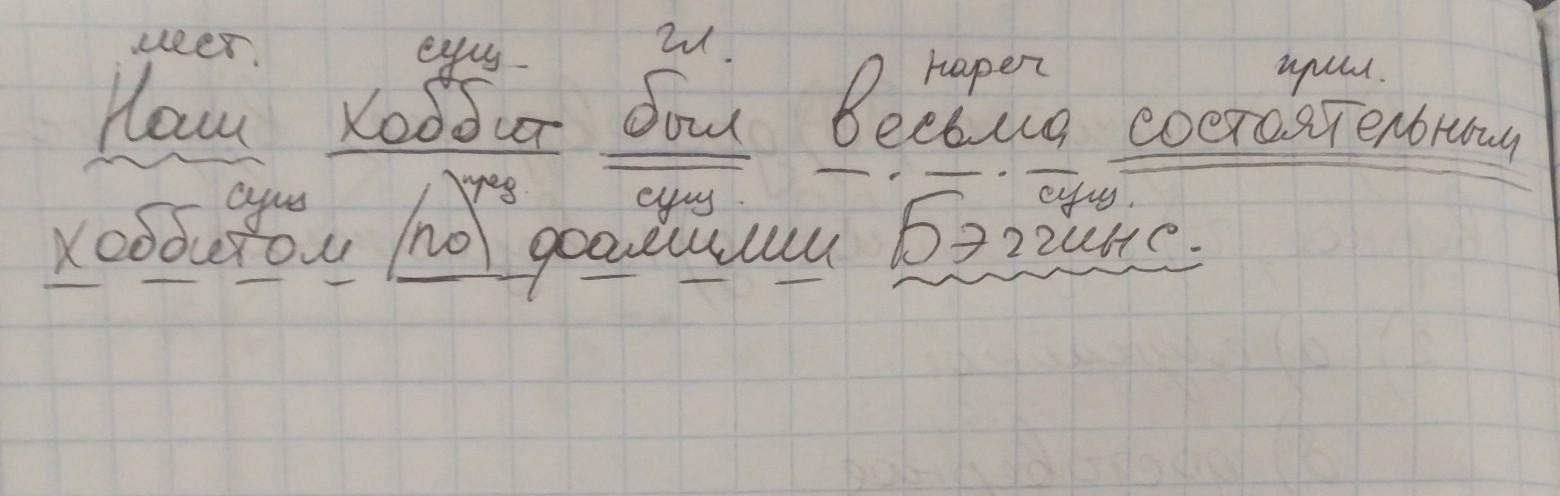 мест. сущ. гл. нареч прил.
Наш хоббит был весьма состоятельным
сущ пред. сущ. сущ.
хоббитом (по) фамилии Бэггинс.